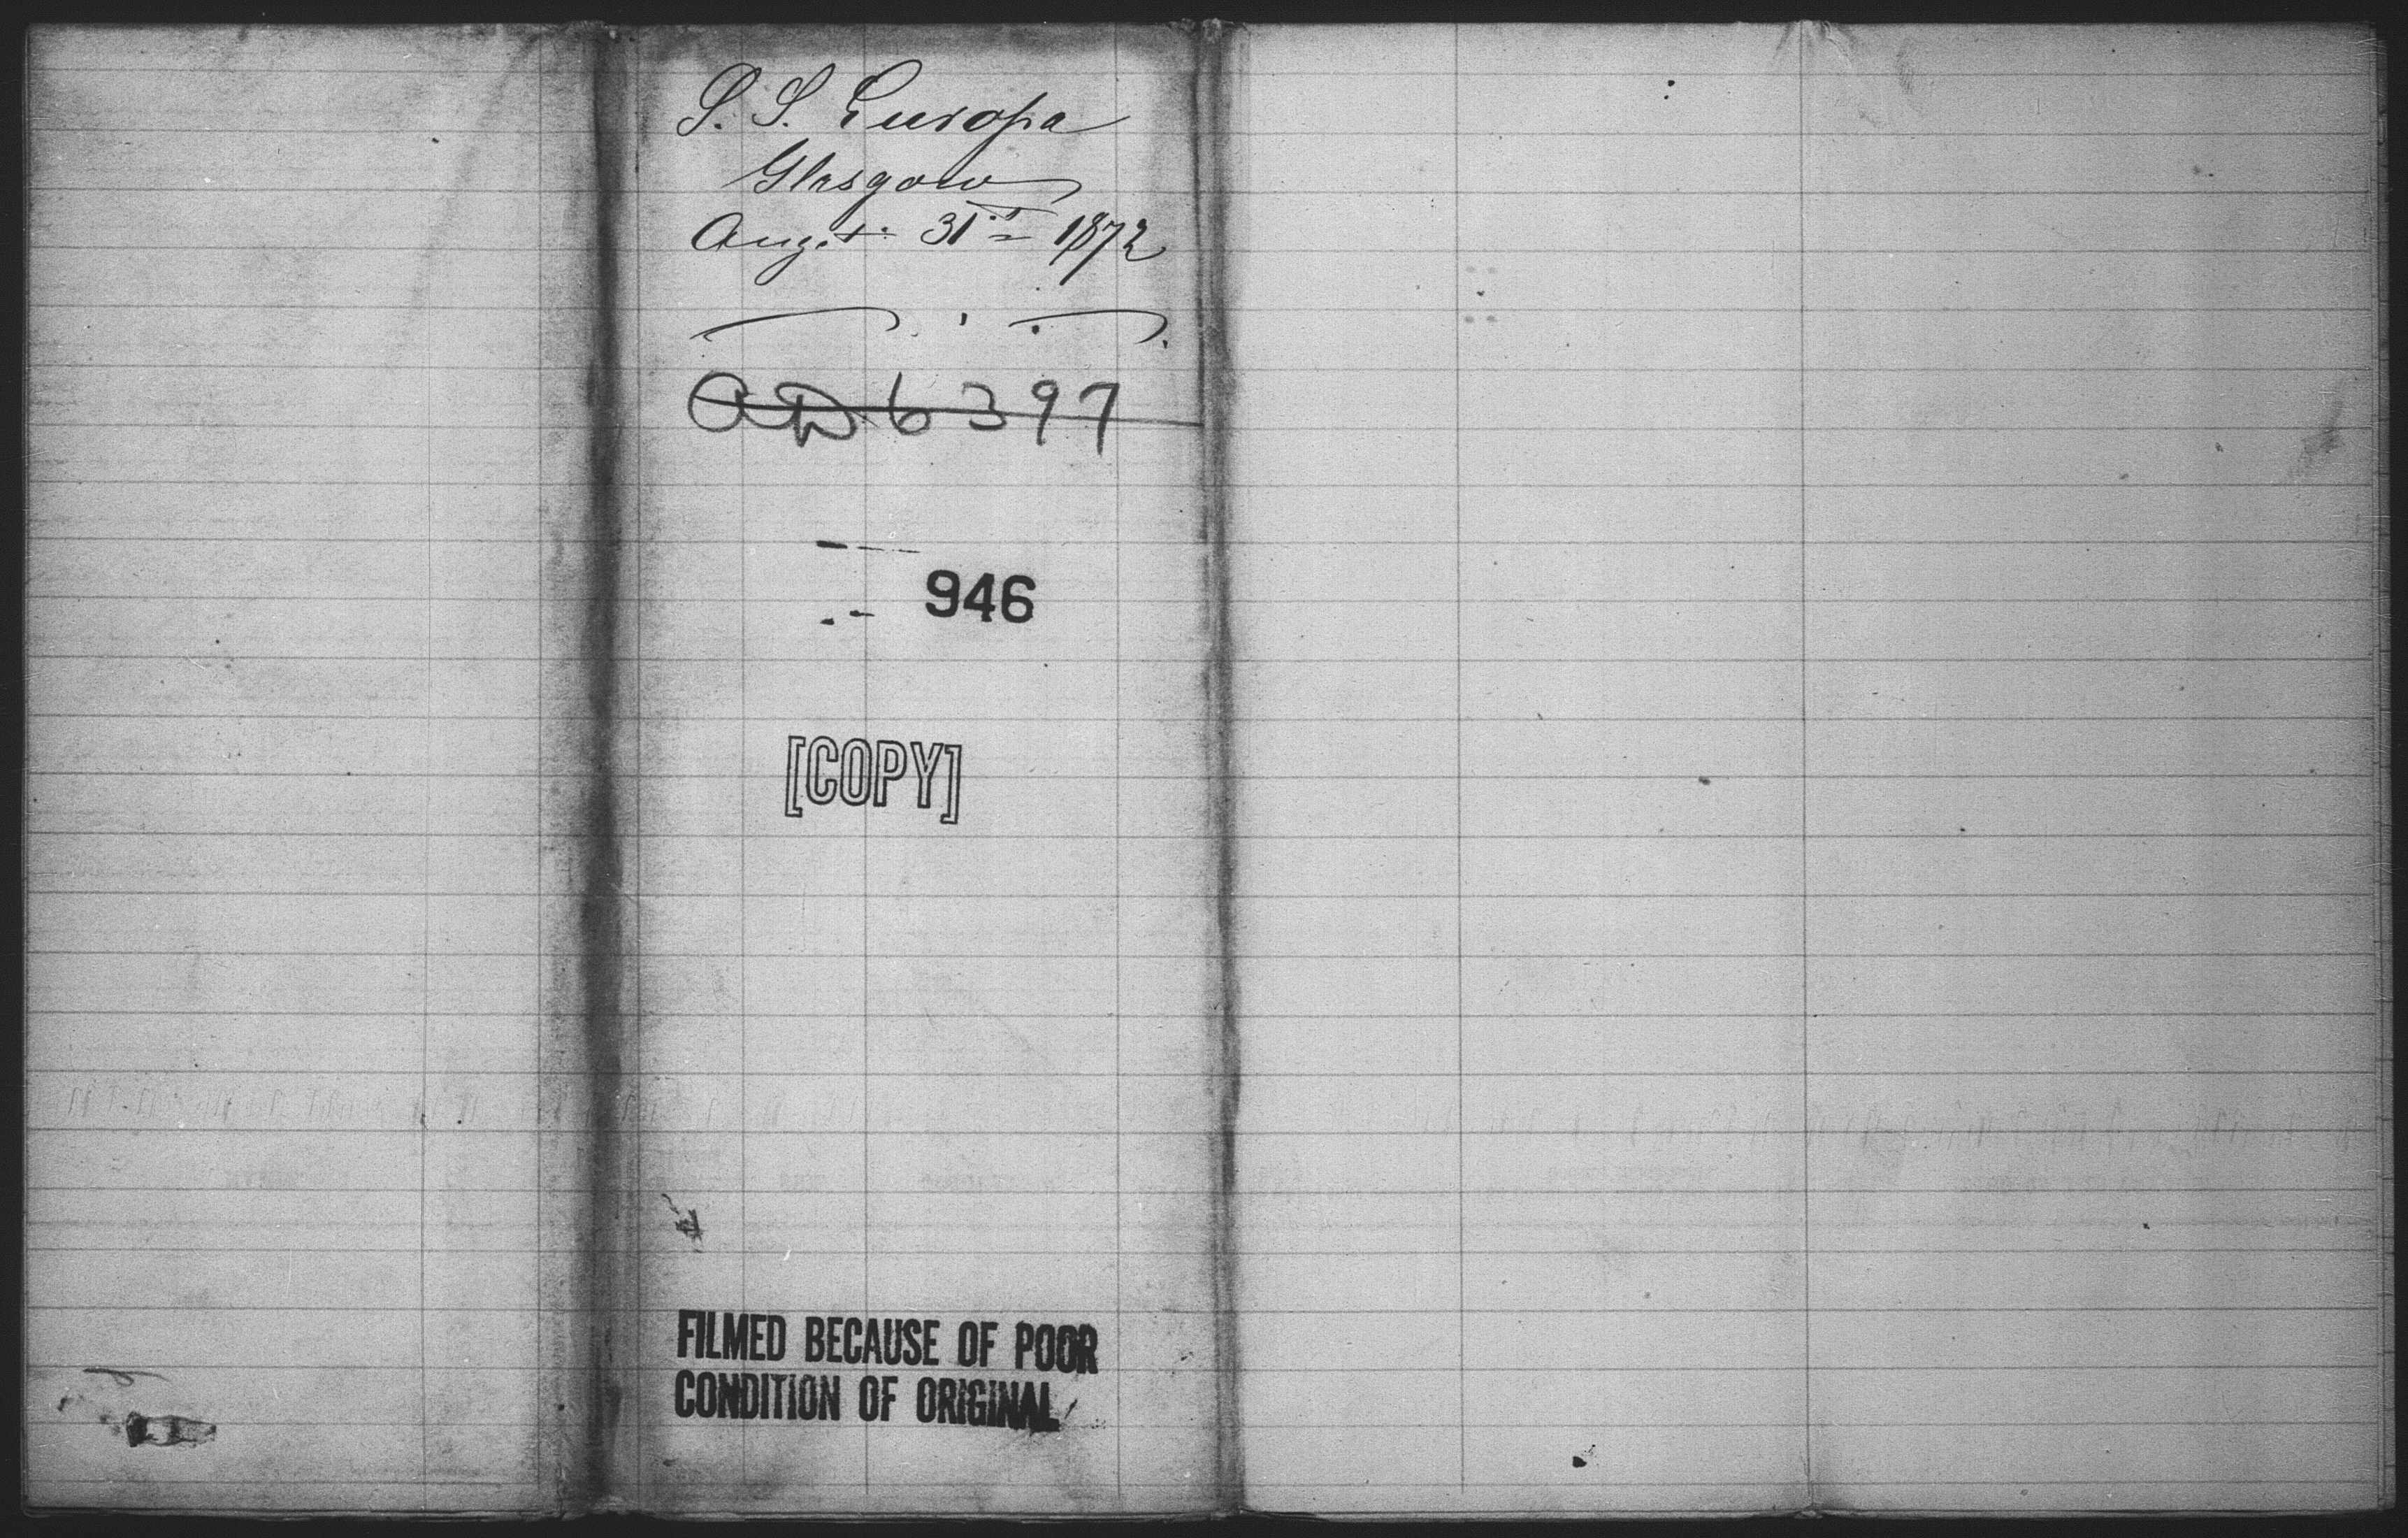 S. S. Europa
Glasgow
Augst 31st 1872
AD 6397
946
[COPY]
FILMED BECAUSE OF POOR
CONDITION OF ORIGINAL